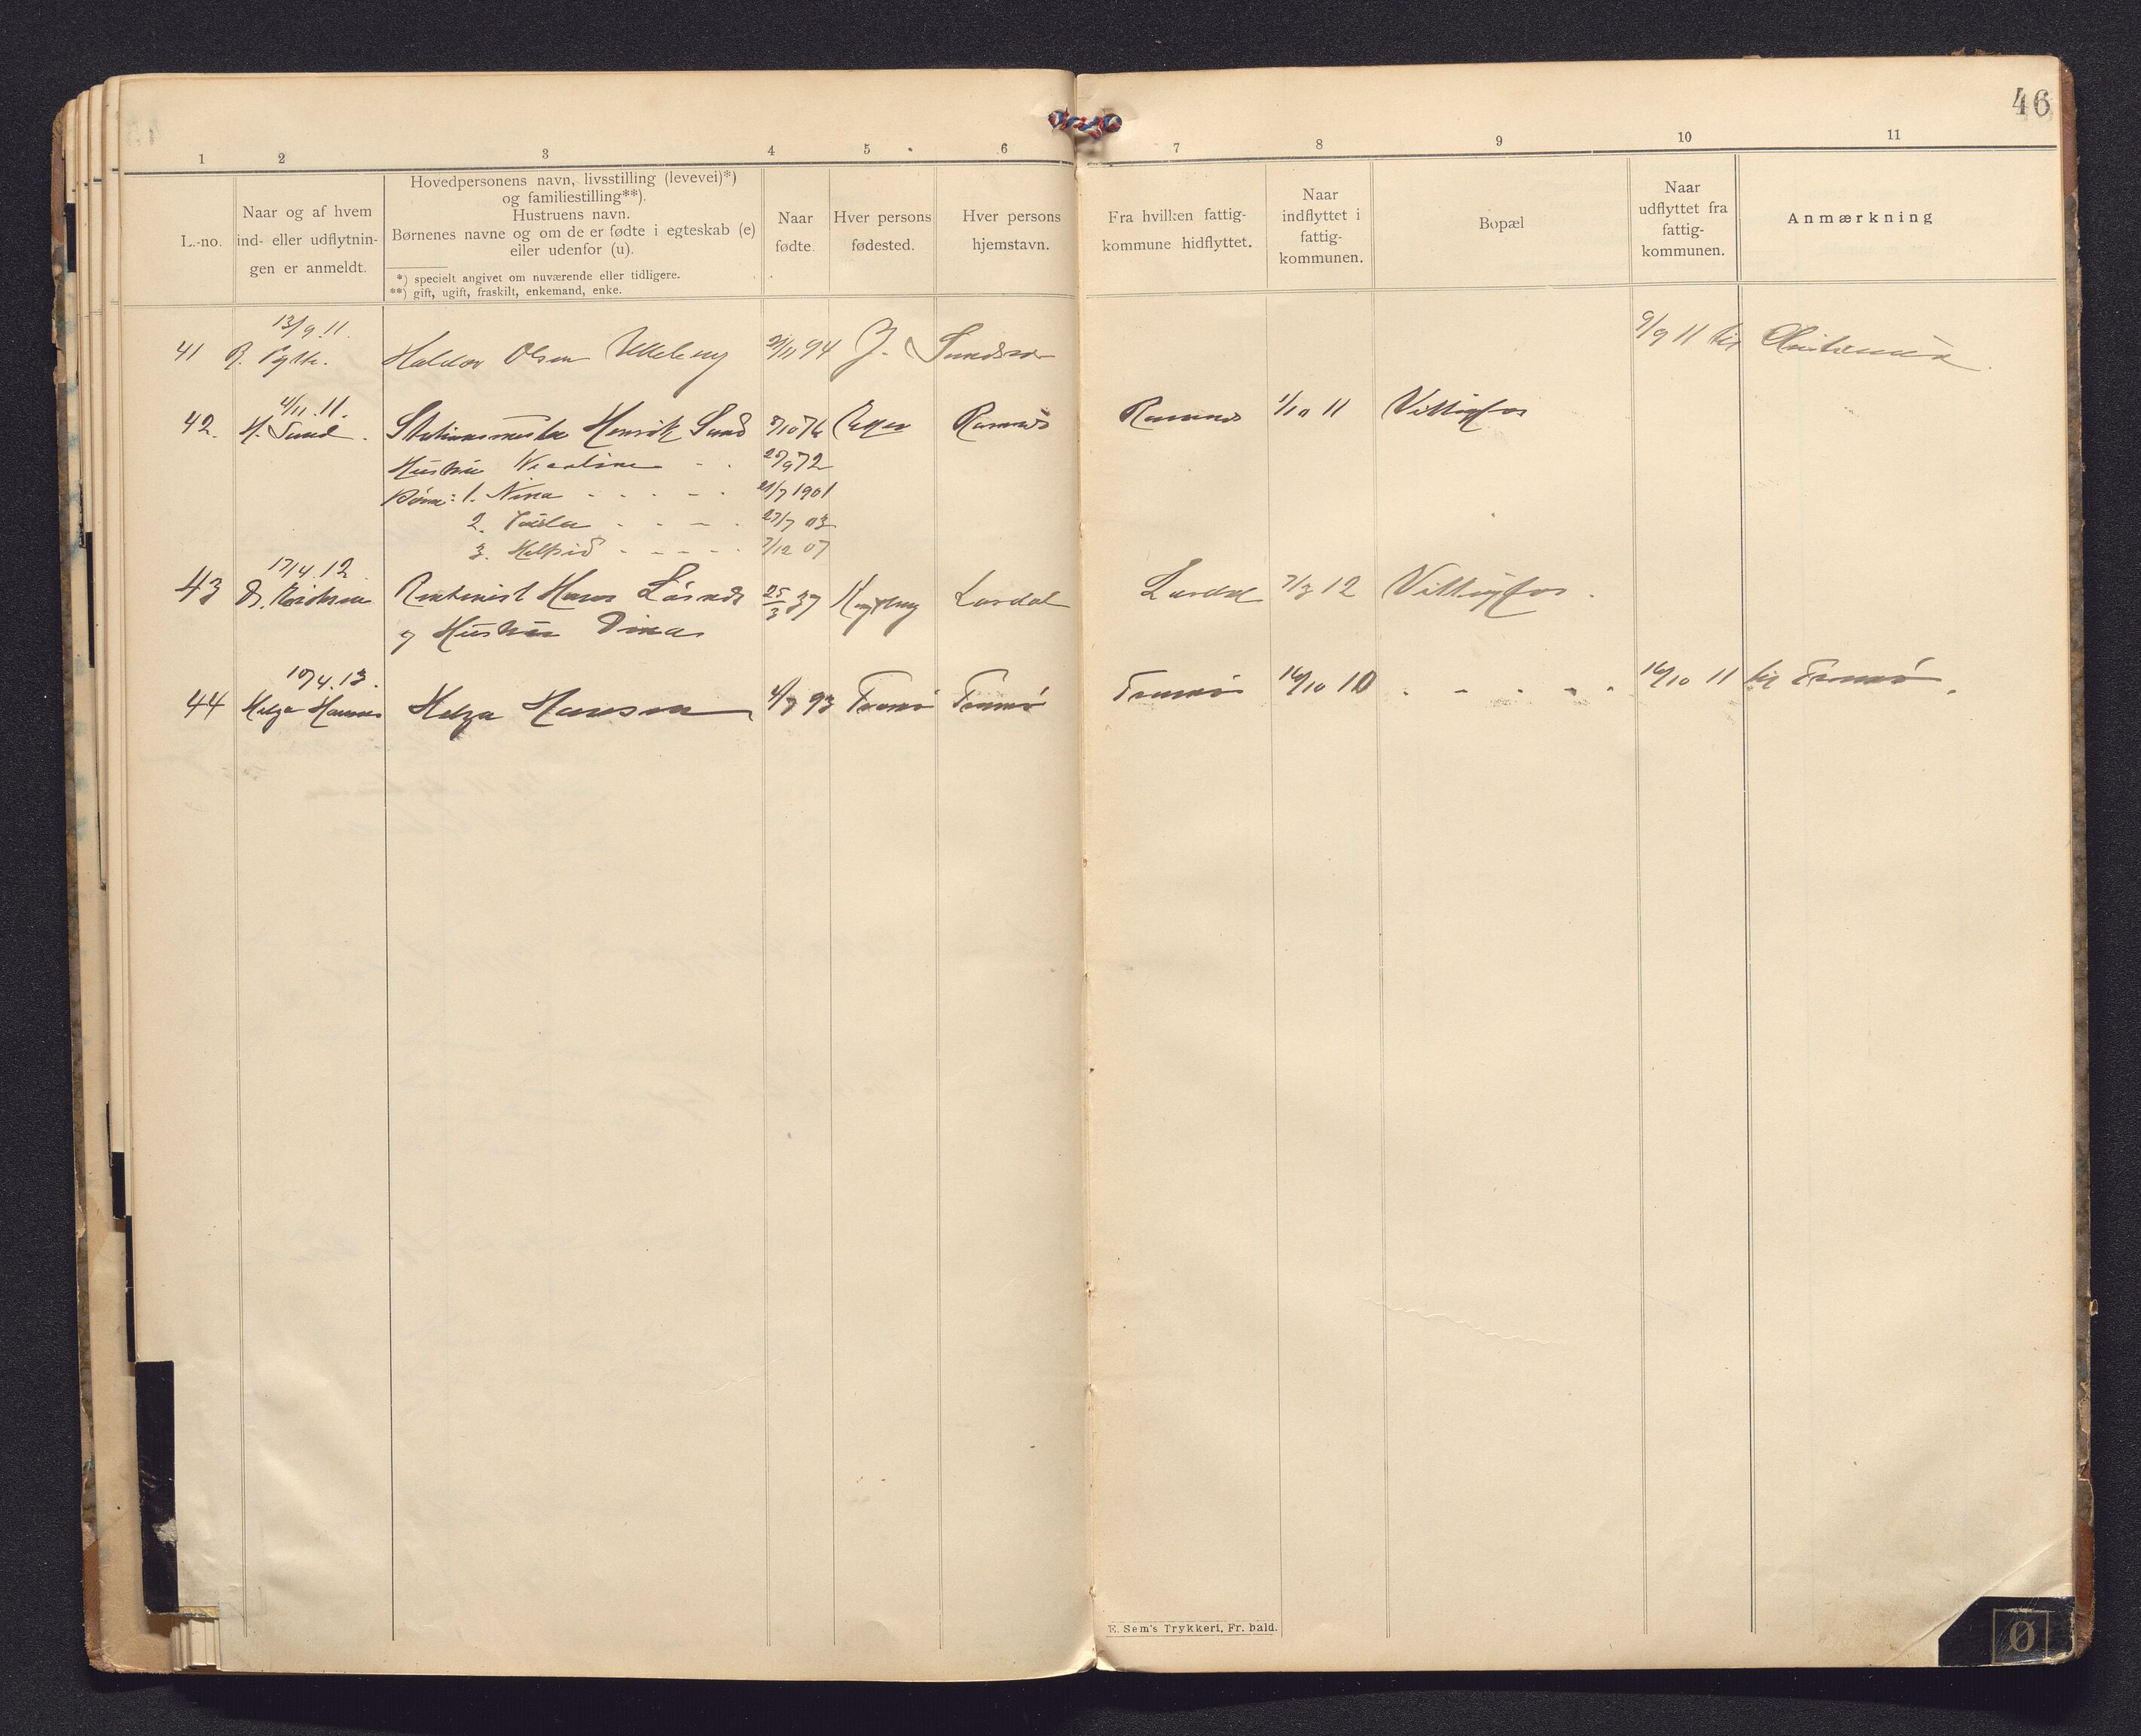 46
1 2 3 4 5 6 7 8 9 10 11
L.-no.
Naar og af hvem
ind- eller udflytnin-
gen er anmeldt.
Hovedpersonens navn, livsstilling (levevei)*)
og familiestilling**).
Hustruens navn.
Børnenes navne og om de er fødte i egteskab (e)
eller udenfor (u).
*) specielt angivet om nuværende eller tidligere.
**) gift, ugift, fraskilt, enkemand, enke.
Naar
fødte.
Hver persons
fødested.
Hver persons
hjemstavn.
Fra hvilken fattig-
kommune hidflyttet.
Naar
indflyttet i
fattig-
kommunen.
Bopæl
Naar
udflyttet fra
fattig-
kommunen.
Anmærkning
13/9 11
9/9 11 til
41 Haldor Olsen 94 J.
4/11 11.
42. H. Sund. Stationsmester Henrik Sund 76 Ramnes Ramnes 1/10 11 Vittingfos
Hustru 72
Børn: 1. Nina 21/7 1901
2. 27/7 03
3. 7/12 07
17/4 12
43 Hans 25/3 37 Lardal Lardal 7/3 12 Vittingfos.
og Hustru Dina
10/4 13.
44 Helga Hansen Helga Hansen 4/7 93 Tromø Tromø Tromø 16/10 10 16/10 11 til Tromø.
E. Sem's Trykkeri, Fr. hald.
Ø